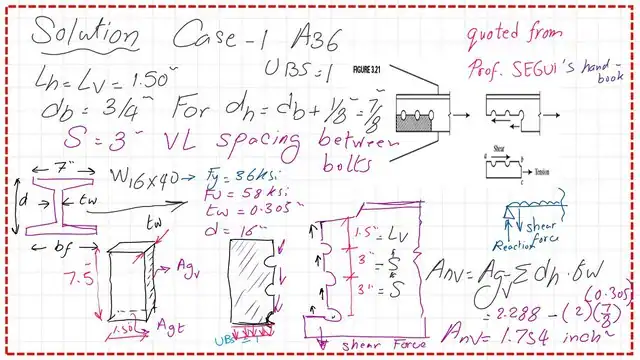 Solution Case-1 A36
quoted from
Prof. SEGUI's hand-
book
Lh = Lv = 1.50"
UBS = 1
FIGURE 3.21
db = 3/4" For dh = db + 1/8" = 7/8"
S = 3" VL spacing between
bolts
Shear
a
b
c
Tension
7"
W16x40
Fy = 36 ksi
Fu = 58 ksi
tw = 0.305"
d = 16"
d
tw
bf
tw
7.5"
Agv
1.50"
Agt
1.5" = Lv
3" = S
3" = S
shear Force
Reaction
shear
force
Anv = Agv - Σ dh · tw
(0.305)
= 2.288 - (2)(7/8)
Anv = 1.754 inch²